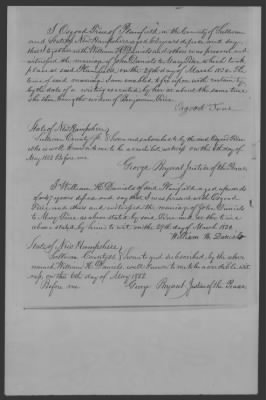 I Osgood True of Plainfield, in the County of Sullivan
and State of New Hampshire, aged years depose and say,
that together with William H. Daniels and others was present and
witnessed the marriage of John Daniels to Mary True, which took
place at said Plainfield, on the 29th day of March 1830. The
time of said marriage I am enabled to fix upon with certainty
by the date of a writing executed by her at about the same time.
She then being the widow of Benjamin True.
Osgood True
State of New Hampshire
Sullivan County ss Sworn and subscribed to by the said Osgood True
who is well known to me to be a credible witness on the 6th day of
May 1852 Before me
George Bryant Justice of the Peace.
I William H. Daniels of said Plainfield aged upwards
of years depose and say that I was present with Osgood
True and others and witnessed the marriage of John Daniels
to Mary True as above stated by said True and at the time
above stated by him to wit on the 29th day of March 1830.
William H. Daniels
State of New Hampshire
Sullivan County ss Sworn to and subscribed by the above
named William H. Daniels, well known to me to be a credible wit-
ness, on this 6th day of May 1852
Before me George Bryant Justice of the Peace